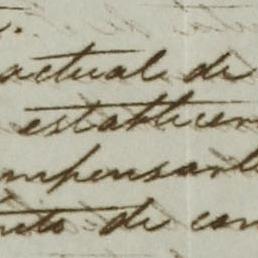 actual de
establecer
mpensarl
nto de con